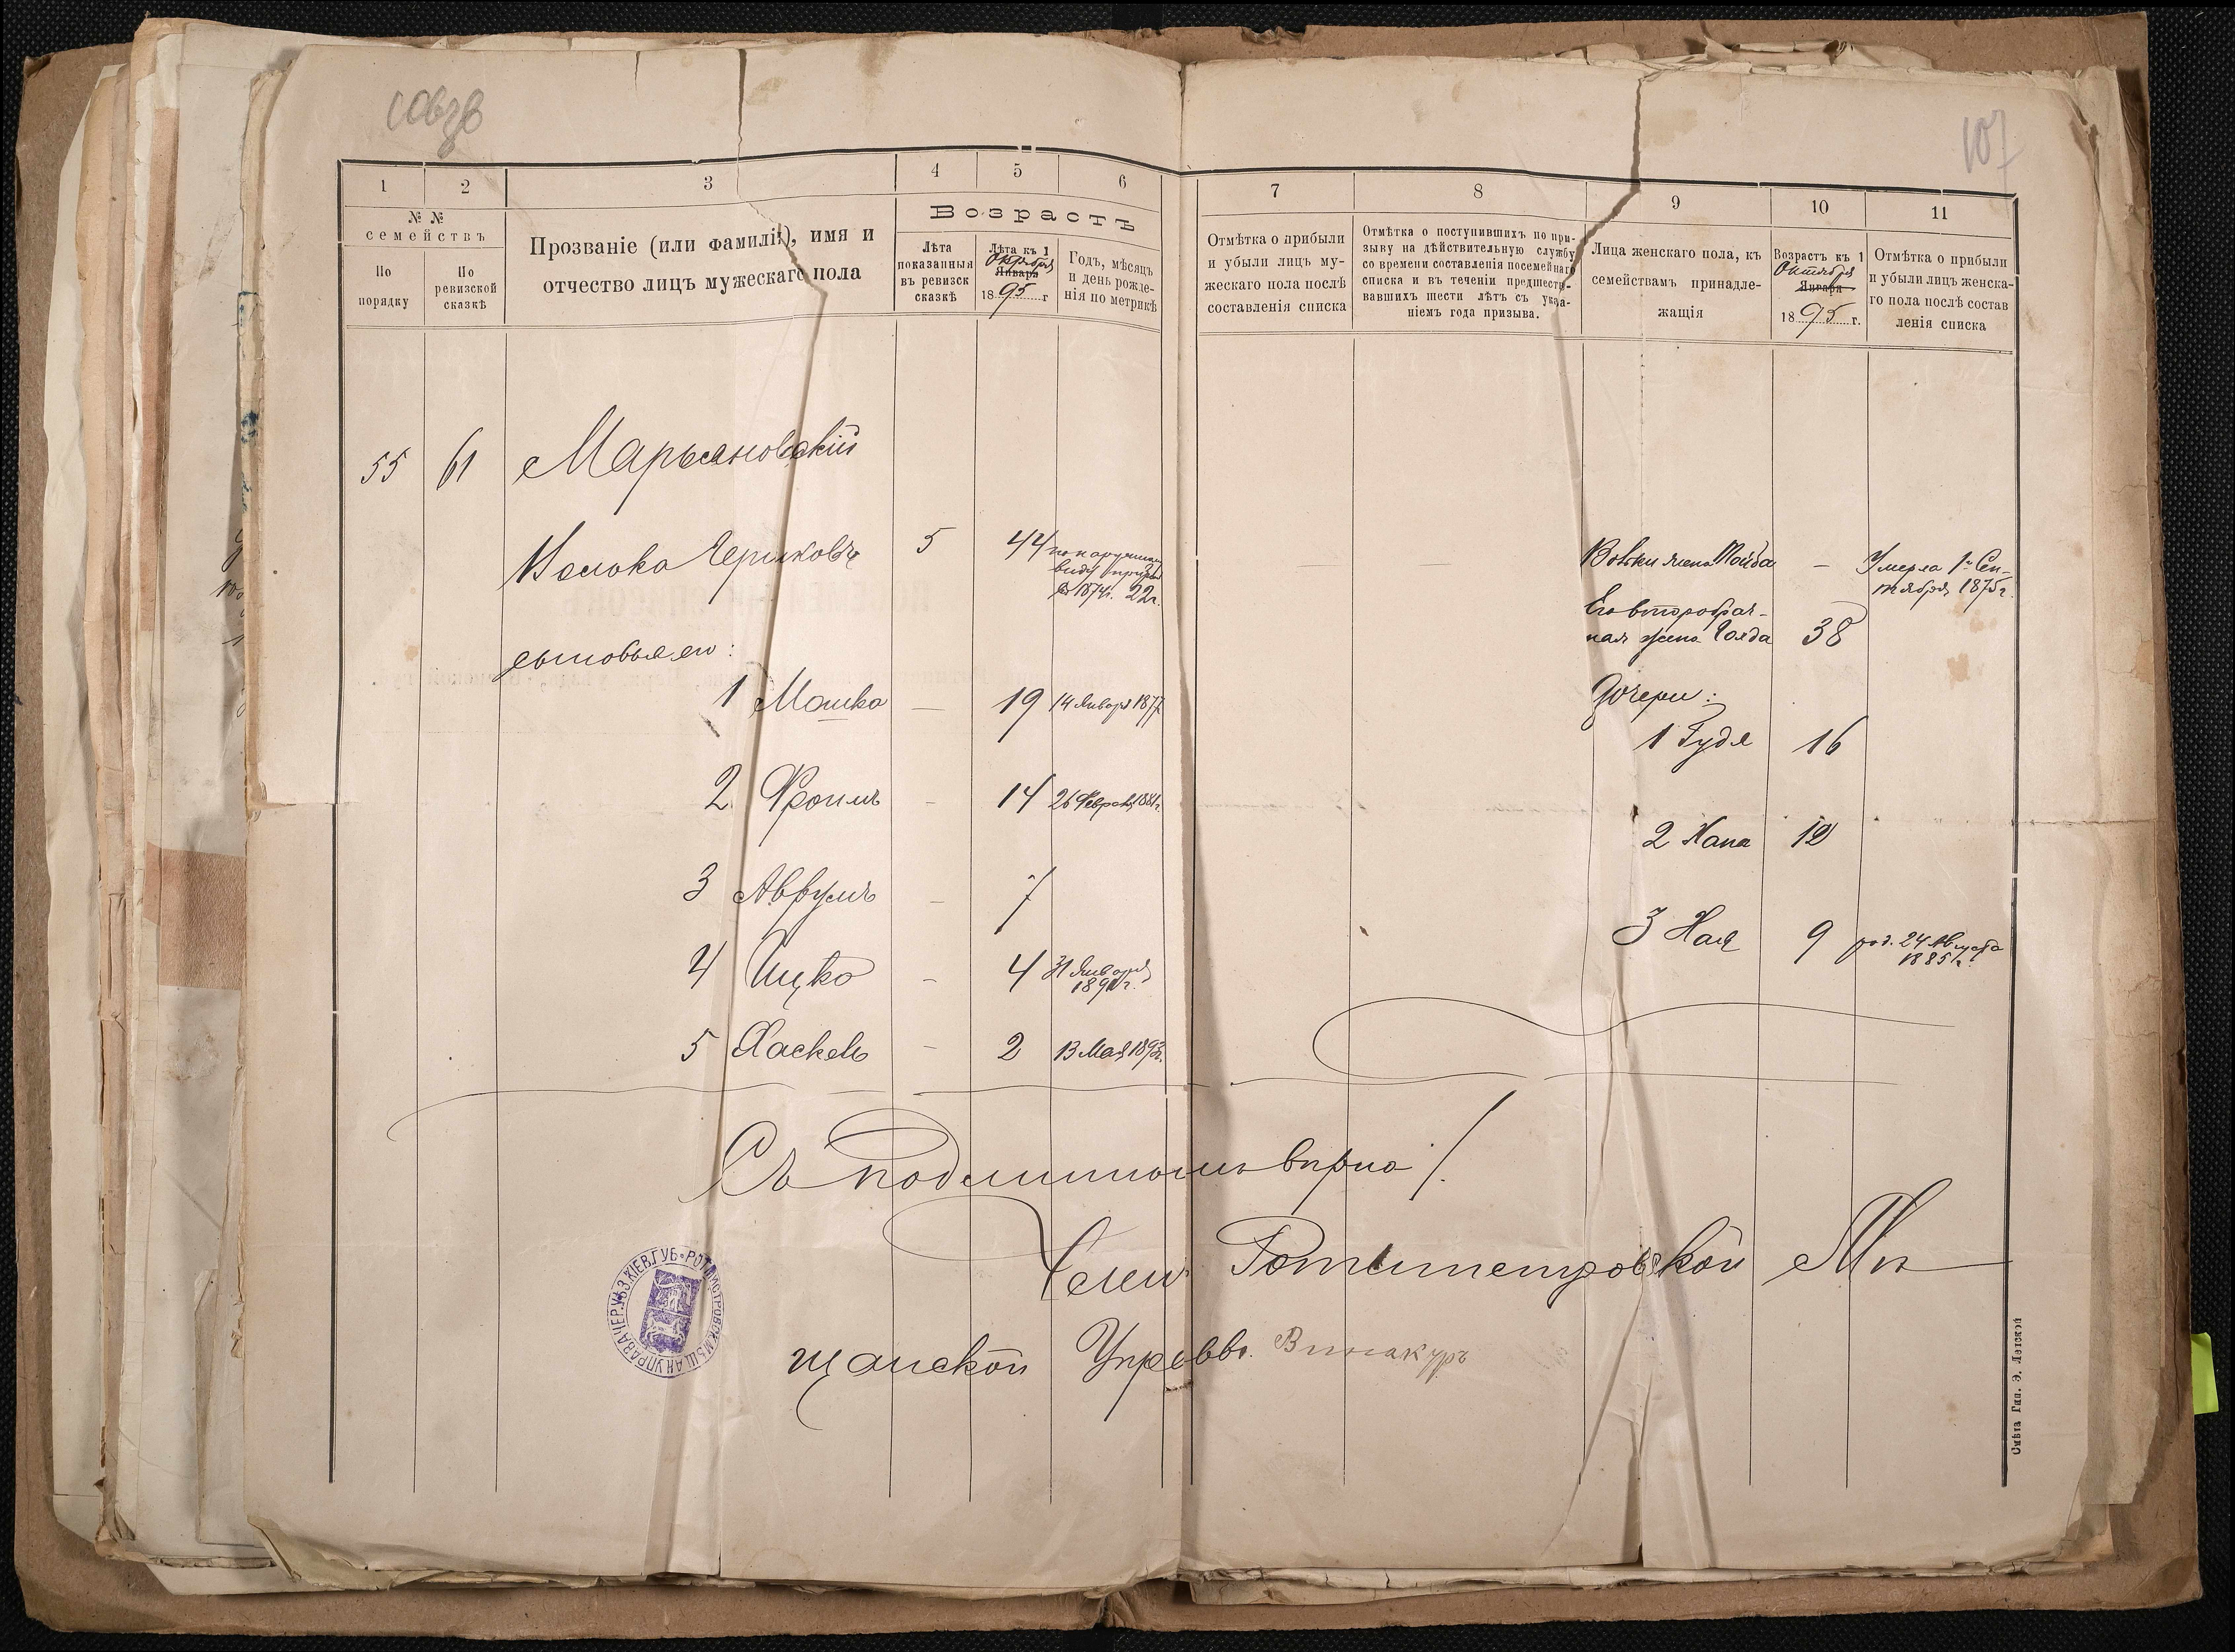 107
1
2
3
4
5
6
7
8
9
10
11
№ №
семействъ
По
порядку
По
ревизской
сказкѣ
Прозваніе (или фамилія), имя и
отчество лицъ мужескаго пола
Возрастъ
Лѣта
показанныя
въ ревизск
сказкѣ
Лѣта къ 1
Октября
Января
1895 г
Годъ, мѣсяцъ
и день рожде-
нія по метрикѣ
Отмѣтка о прибыли
и убыли лицъ му-
жескаго пола послѣ
составленія списка
Отмѣтка о поступившихъ по при-
зыву на дѣйствительную службу
со времени составленія посемейнаго
списка и въ теченіи предшество-
вавшихъ шести лѣтъ съ указа-
ніемъ года призыва.
Лица женскаго пола, къ
семействамъ принадле-
жащія
Возрастъ къ 1
Октября
Января
1895 г.
Отмѣтка о прибыли
и убыли лицъ женска-
го пола послѣ состав
ленія списка
55 61 Марьяновскій
5 44 по наружному
виду признан
въ 1874г. 22г.
жена
Умерла 1го Сен-
тября 1875г.
Его второбрач-
ная жена Голда 38
сыновья его:
1 Мошко — 19 14 Января 1877
Дочери:
1 Гудя 16
2 Фроимъ - 14 26 Февраля 1881г.
2 Хана 12
3 Аврумъ - 7
3 Хая 9 род. 24 Августа
1885г.
4 Ицко - 4 31 Января
1891г.
5 Хаскель - 2 13 Мая 1893г.
Съ подлиннымъ вѣрно
Членъ Ротмистровской Мѣ
щанской Управы Винакуръ
РОТМИСТРОВСК. МѢЩАН УПРАВА ЧЕР. УѢЗ. КІЕВ. ГУБ.
Смѣла Тип. Э. Лѣтской